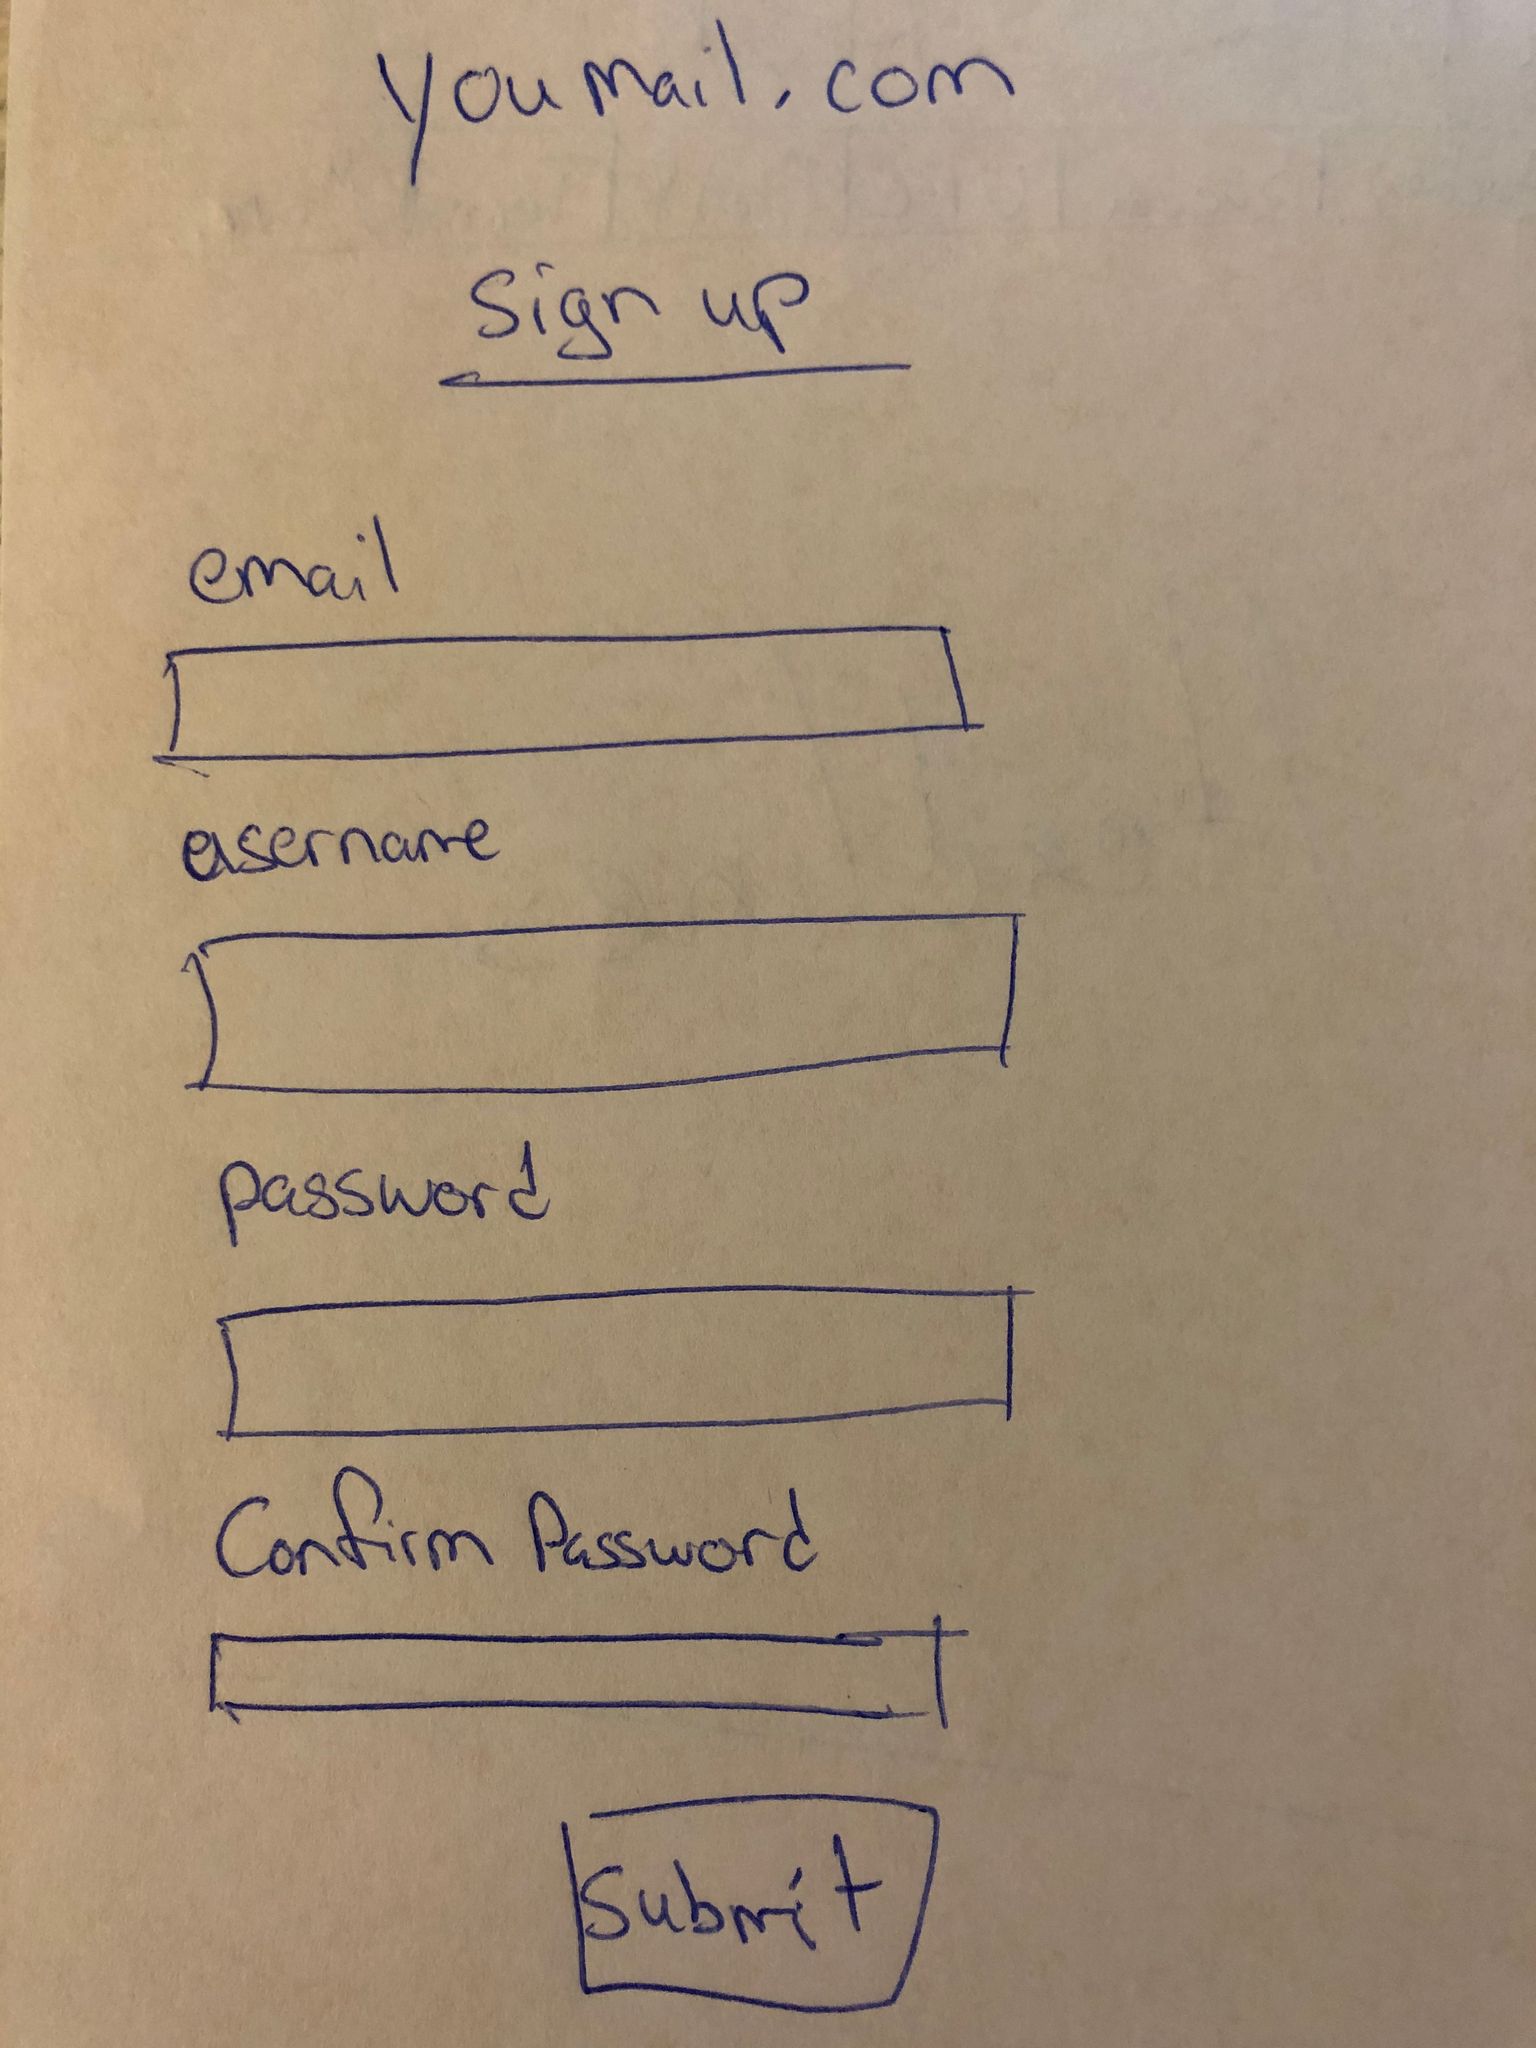 youmail.com
Sign up
email
username
password
Confirm Password
Submit